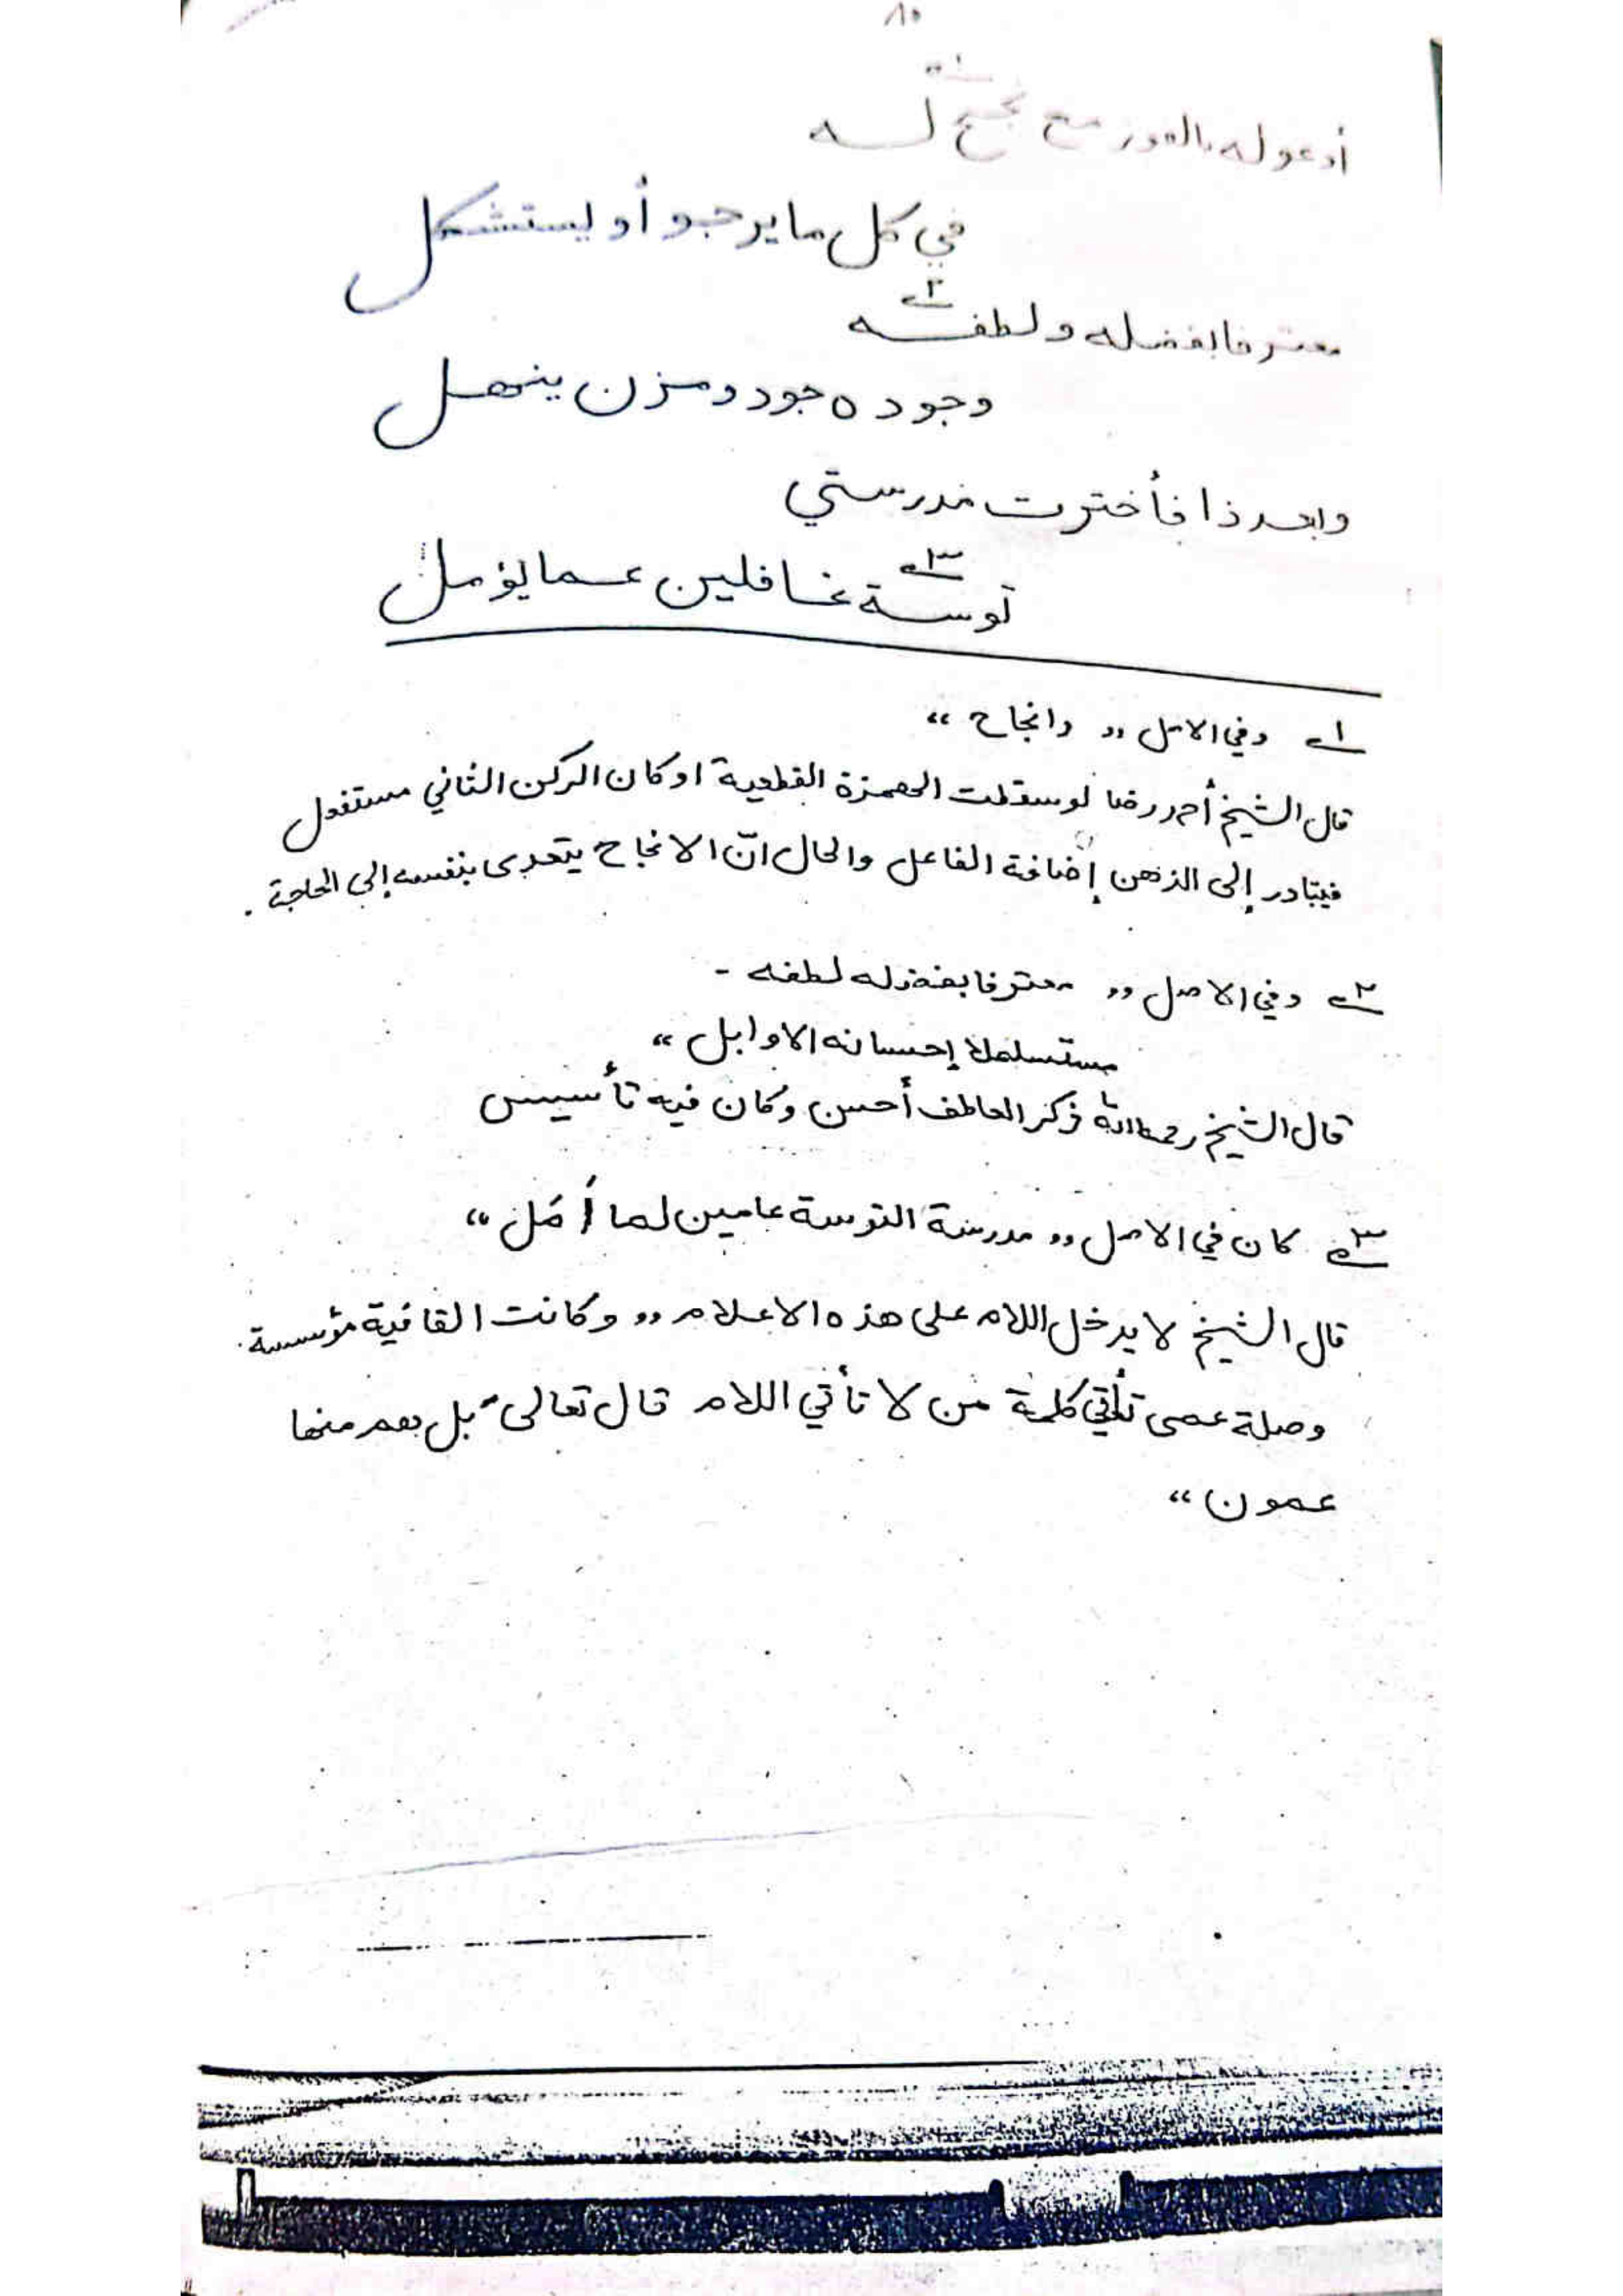 ٨٥
أدعو له بالفوز مع نجح له
في كل ما يرجو أو يستشكل
معترفا بفضله ولطفه
وجوده جود ومزن ينهل
وبعد ذا فأخترت مدرستي
توسة غافلين عما يؤمل
١ـ وفي الاصل ,, وانجاح “
قال الشيخ أحمد رضا لو سقطت الهمزة القطعية او كان الركن الثاني مستفعل
فيتبادر إلى الذهن إضافة الفاعل والحال انّ الانجاح يتعدى بنفسه إلى الحاجة .
٢ـ وفي الاصل ,, معترفا بفضله لطفه -
مستسلما إحسانه الاوابل “
قال الشيخ رحمه الله ذكر العاطف أحسن وكان فيه تأسيس
٣ـ كان في الاصل ,, مدرسة التوسة عامين لما أمل “
قال الشيخ لا يدخل اللام على هذه الاعلام ,, وكانت القافية مؤسسة .
وصلة عمى تأتي كلمة من لا تأتي اللام قال تعالى “ بل هم منها
عمون “